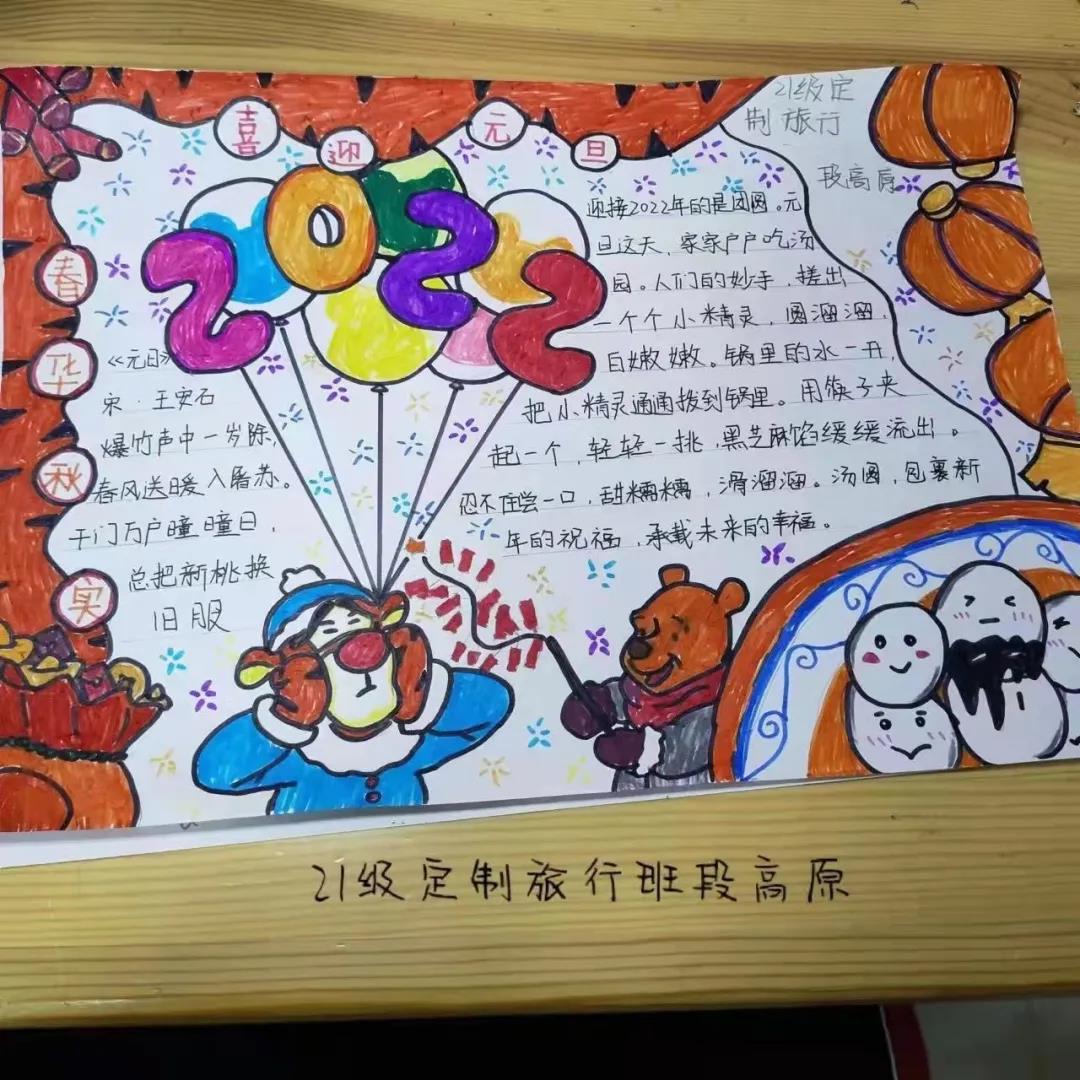 喜迎元旦
2022
春华秋实
21级定
制旅行
段高原
《元日》
宋·王安石
爆竹声中一岁除,
春风送暖入屠苏。
千门万户曈曈日,
总把新桃换
旧服
迎接2022年的是团圆。元
旦这天,家家户户吃汤
圆。人们的妙手,搓出
一个个小精灵,圆溜溜,
白嫩嫩。锅里的水一开,
把小精灵通通拨到锅里。用筷子夹
起一个,轻轻一挑,黑芝麻馅缓缓流出。
忍不住尝一口,甜糯糯,滑溜溜。汤圆,包裹新
年的祝福,承载未来的幸福。
21级定制旅行班段高原